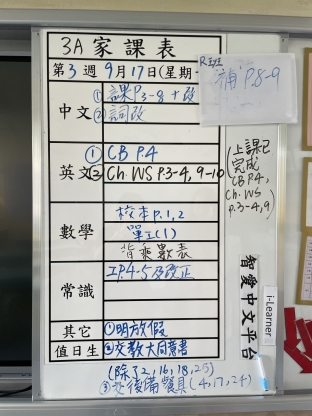 3A 家課表
第3週 9月17日(星期一
R班
補 P.8-9
中文
① 課P3-8+改
② 詞改
英文
① CB P.4
② Ch. WS P.3-4, 9-10
(上課已
完成
CB P.4,
Ch. WS
p.3-4, 9)
數學
校本 p.1, 2
單工(1)
背乘數表
常識
工P.4-5及改正
其它
①明放假
值日生
②交教大同意書
(除了2, 16, 18, 25)
③交後備餐具(4, 17, 24)
智愛中文平台
i-Learner